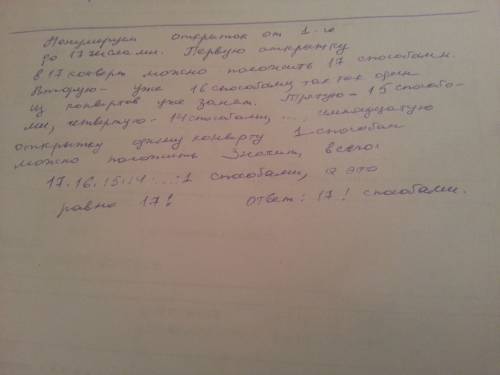 Понумеруем открыток от 1-го
до 17 числами. Первую открытку
в 17 конверт можно положить 17 способами.
Вторую - уже 16 способами, так как один
из конвертов уже занят. Третую - 15 способо-
ми, четвертую - 14 способами, ..., семнадцатую
открытку одному конверту 1 способан
можно положить Значит, всего:
17.16.15.14. ... .1 способами, а это
равно 17! Ответ: 17! способами.